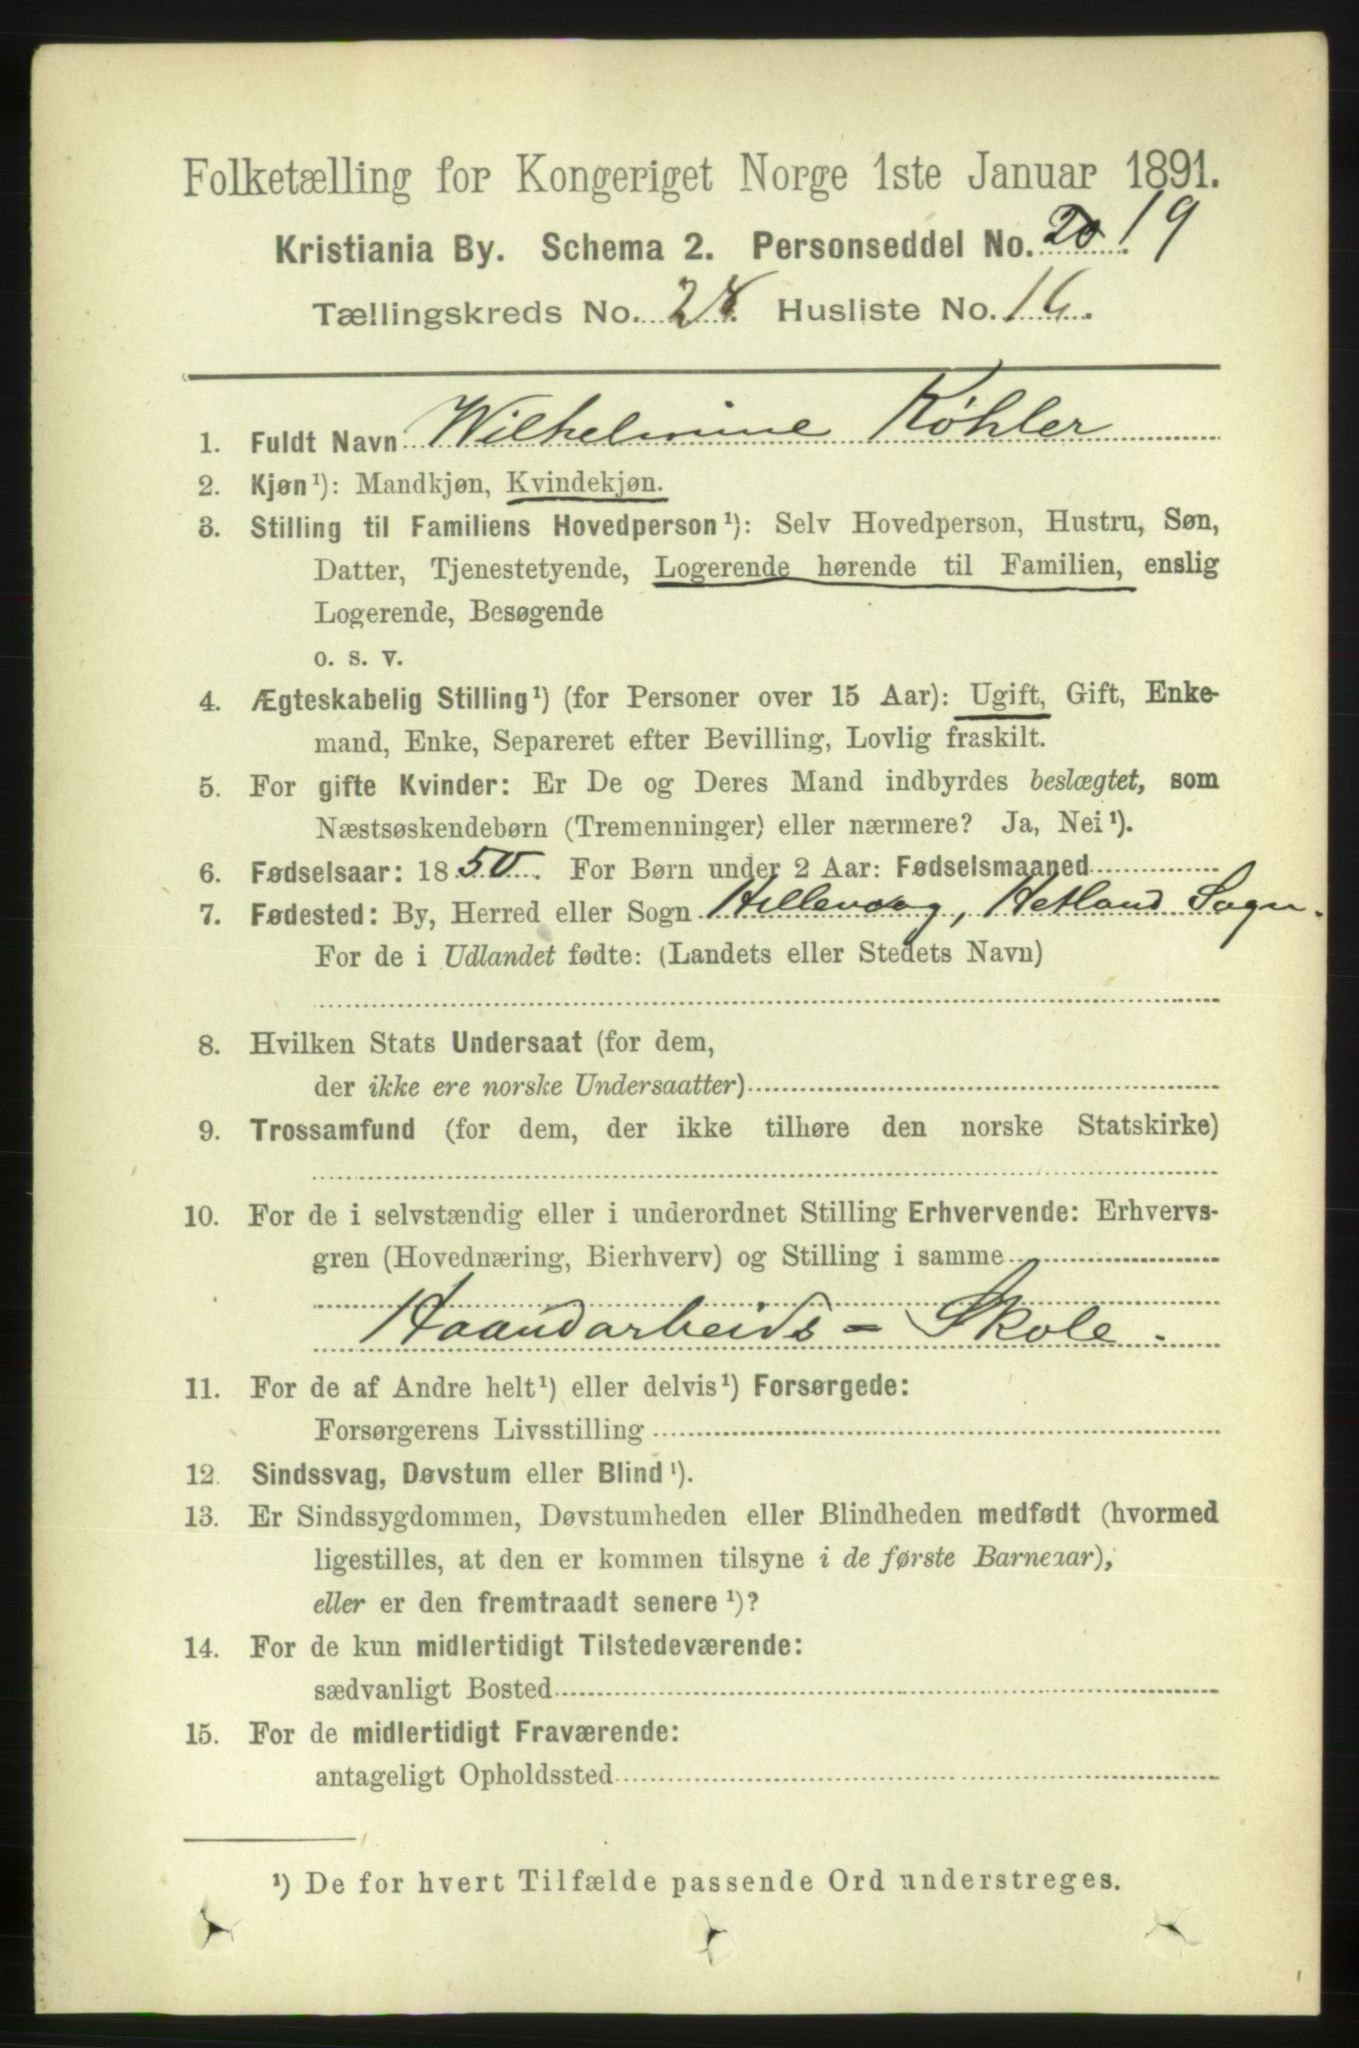 Folketælling for Kongeriget Norge 1ste Januar 1891.
Kristiania By. Schema 2. Personseddel No. 20 19
Tællingskreds No. 28. Husliste No. 16.
1. Fuldt Navn Wilhelmine Köhler
2. Kjøn¹): Mandkjøn, Kvindekjøn.
3. Stilling til Familiens Hovedperson¹): Selv Hovedperson, Hustru, Søn,
Datter, Tjenestetyende, Logerende hørende til Familien, enslig
Logerende, Besøgende
o. s. v.
4. Ægteskabelig Stilling¹) (for Personer over 15 Aar): Ugift, Gift, Enke-
mand, Enke, Separeret efter Bevilling, Lovlig fraskilt.
5. For gifte Kvinder: Er De og Deres Mand indbyrdes beslægtet, som
Næstsøskendebørn (Tremenninger) eller nærmere? Ja, Nei¹).
6. Fødselsaar: 1850. For Børn under 2 Aar: Fødselsmaaned
7. Fødested: By, Herred eller Sogn Hillevaag, Hetland Sogn.
For de i Udlandet fødte: (Landets eller Stedets Navn)
8. Hvilken Stats Undersaat (for dem,
der ikke ere norske Undersaatter)
9. Trossamfund (for dem, der ikke tilhøre den norske Statskirke)
10. For de i selvstændig eller i underordnet Stilling Erhvervende: Erhvervs-
gren (Hovednæring, Bierhverv) og Stilling i samme
Haandarbeids-Skole.
11. For de af Andre helt¹) eller delvis¹) Forsørgede:
Forsørgerens Livsstilling
12. Sindssvag, Døvstum eller Blind¹).
13. Er Sindssygdommen, Døvstumheden eller Blindheden medfødt (hvormed
ligestilles, at den er kommen tilsyne i de første Barneaar),
eller er den fremtraadt senere¹)?
14. For de kun midlertidigt Tilstedeværende:
sædvanligt Bosted
15. For de midlertidigt Fraværende:
antageligt Opholdssted
¹) De for hvert Tilfælde passende Ord understreges.